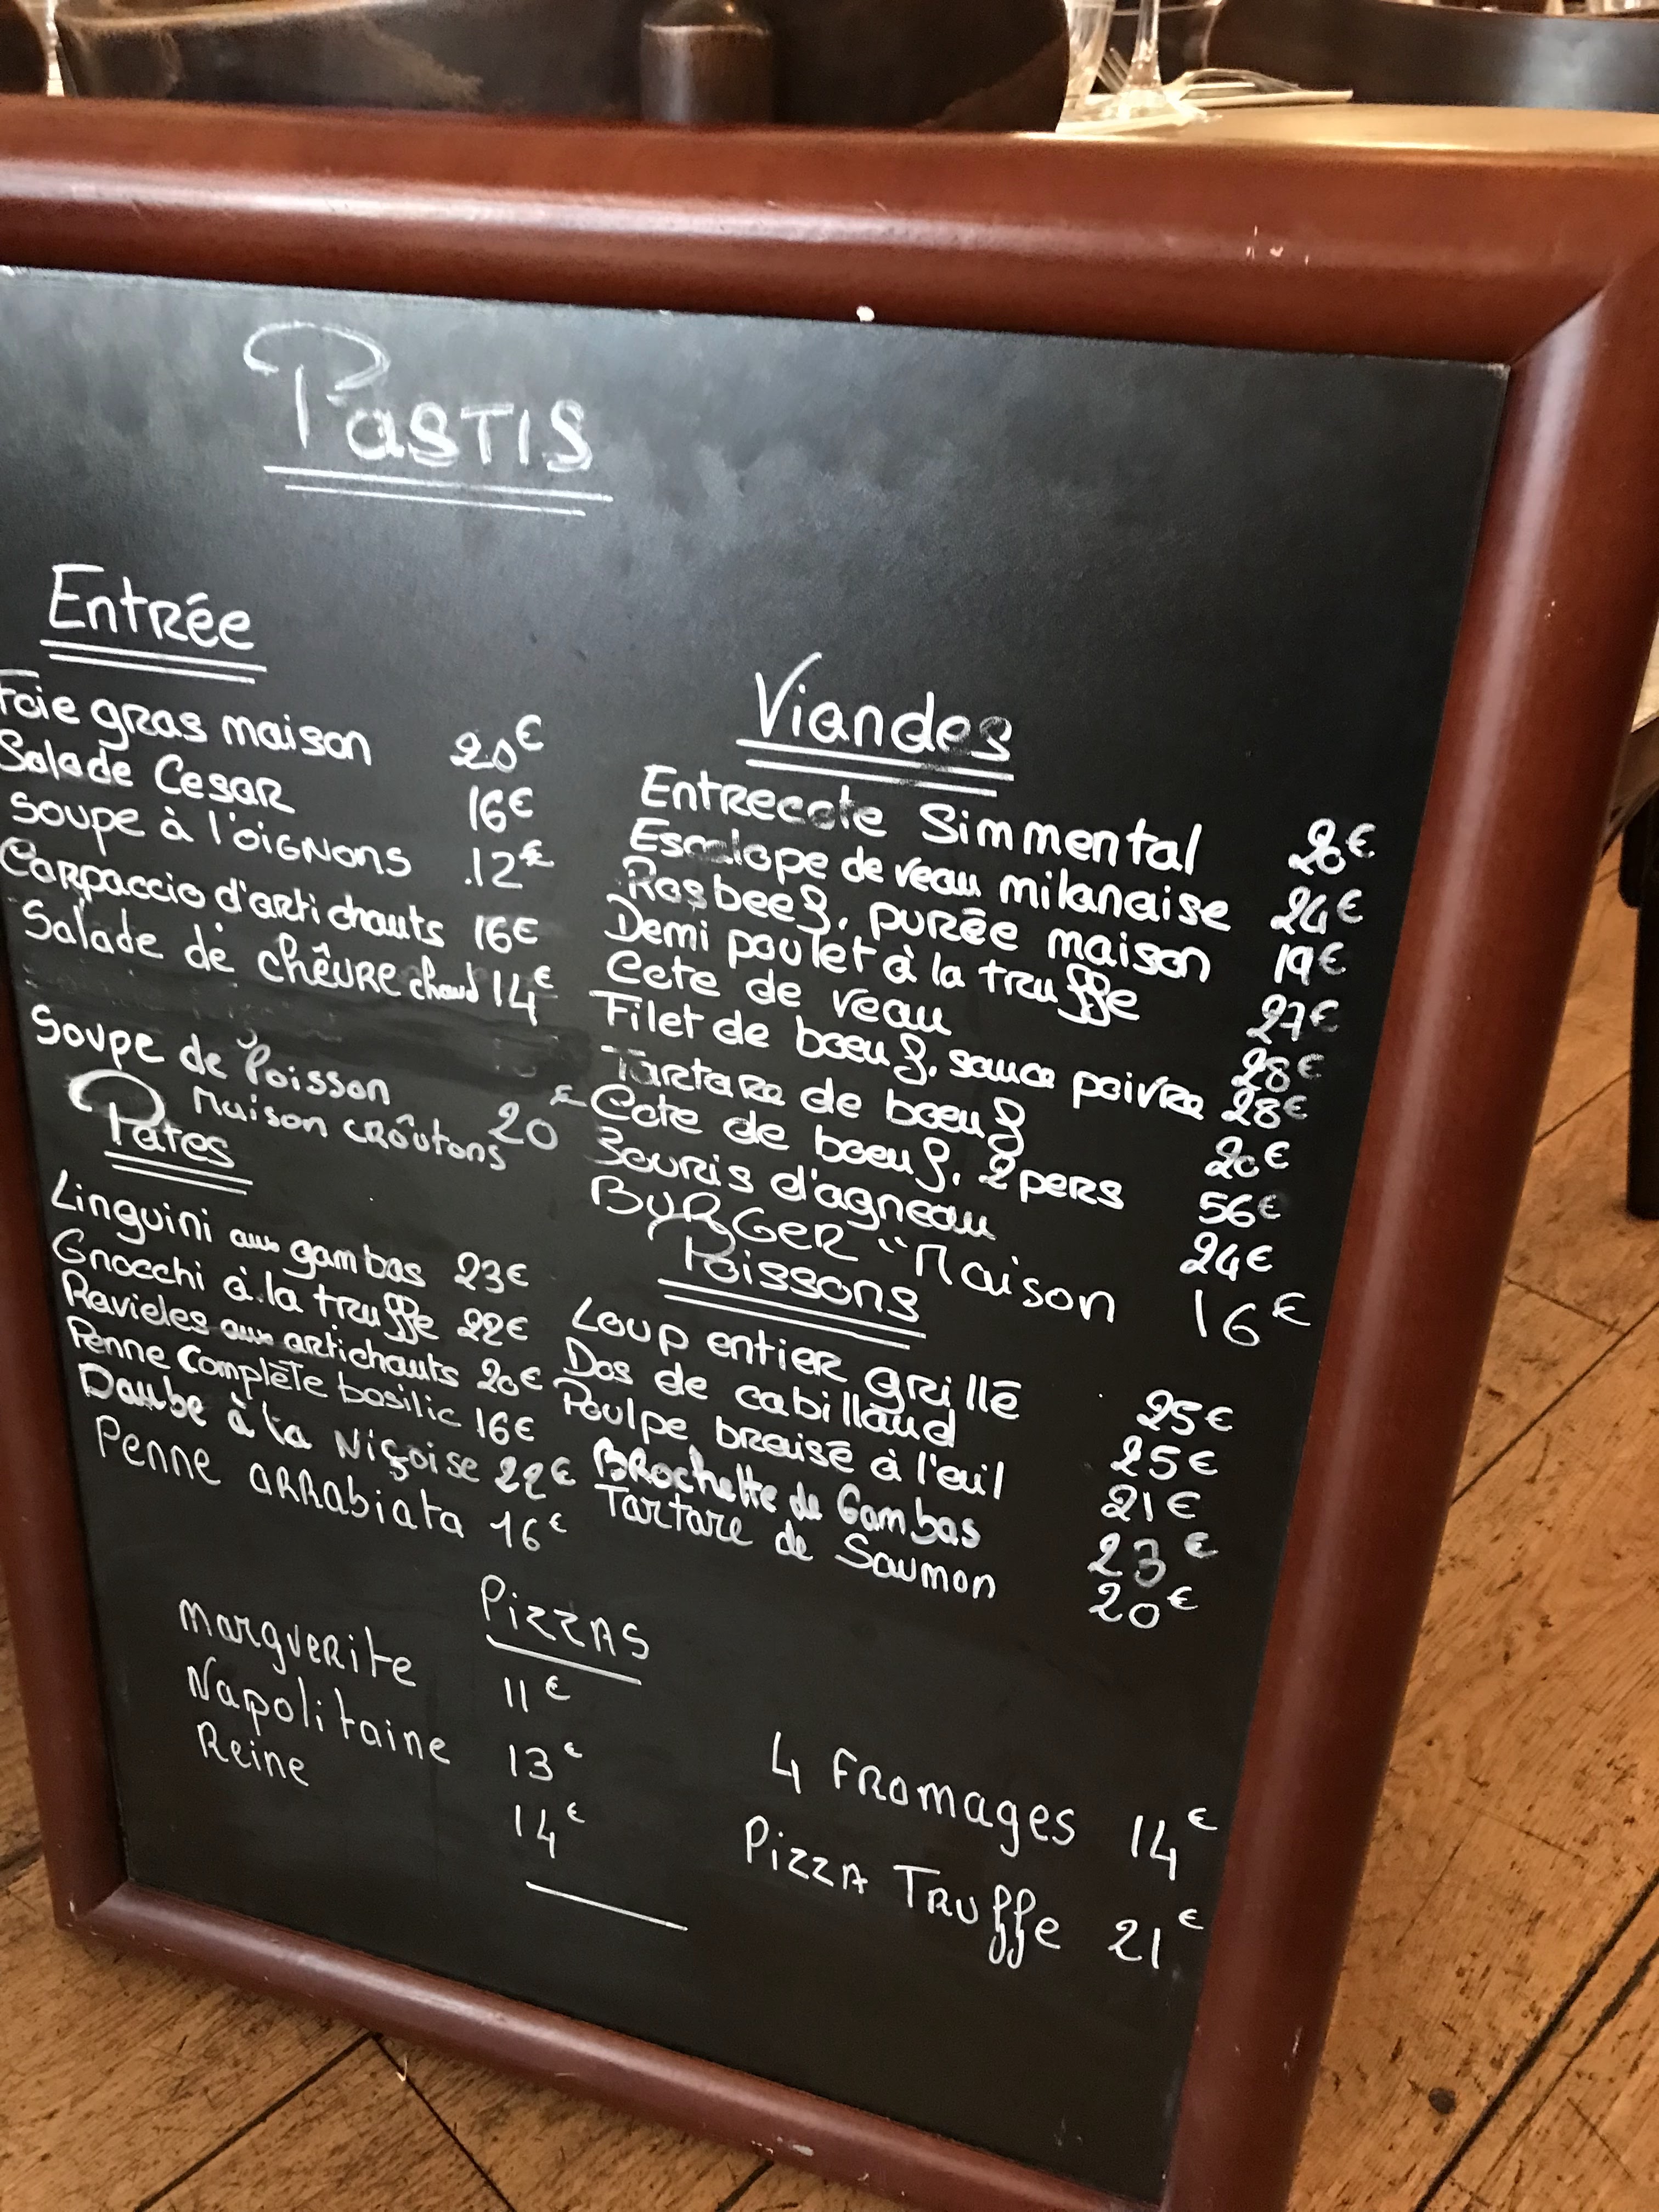 Pastis
Entrée
Foie gras maison 20€
Salade Cesar 16€
Soupe à l'oignons 12€
Carpaccio d'artichauts 16€
Salade de chêvre chaud 14€
Soupe de Poisson
Maison croûtons 20€
Pates
Linguini aux gambas 23€
Gnocchi à la truffe 22€
Ravioles aux artichauts 20€
Penne Complète basilic 16€
Daube à la Niçoise 22€
Penne arrabiata 16€
Viandes
Entrecote Simmental
Escalope de veau milanaise 24€
Rosbeef, purée maison 19€
Demi poulet à la truffe 27€
Cote de veau 28€
Filet de boeuf, sauce poivre 28€
Tartare de boeuf 20€
Cote de boeuf, 2 pers 56€
Souris d'agneau 24€
Burger "Maison 16€
Poissons
Loup entier grillé 25€
Dos de cabillaud 25€
Poulpe braisé à l'ail 21€
Brochette de Gambas 23€
Tartare de Saumon 20€
Pizzas
Marguerite 11€
Napolitaine 13€
Reine 14€
4 Fromages 14€
Pizza Truffe 21€